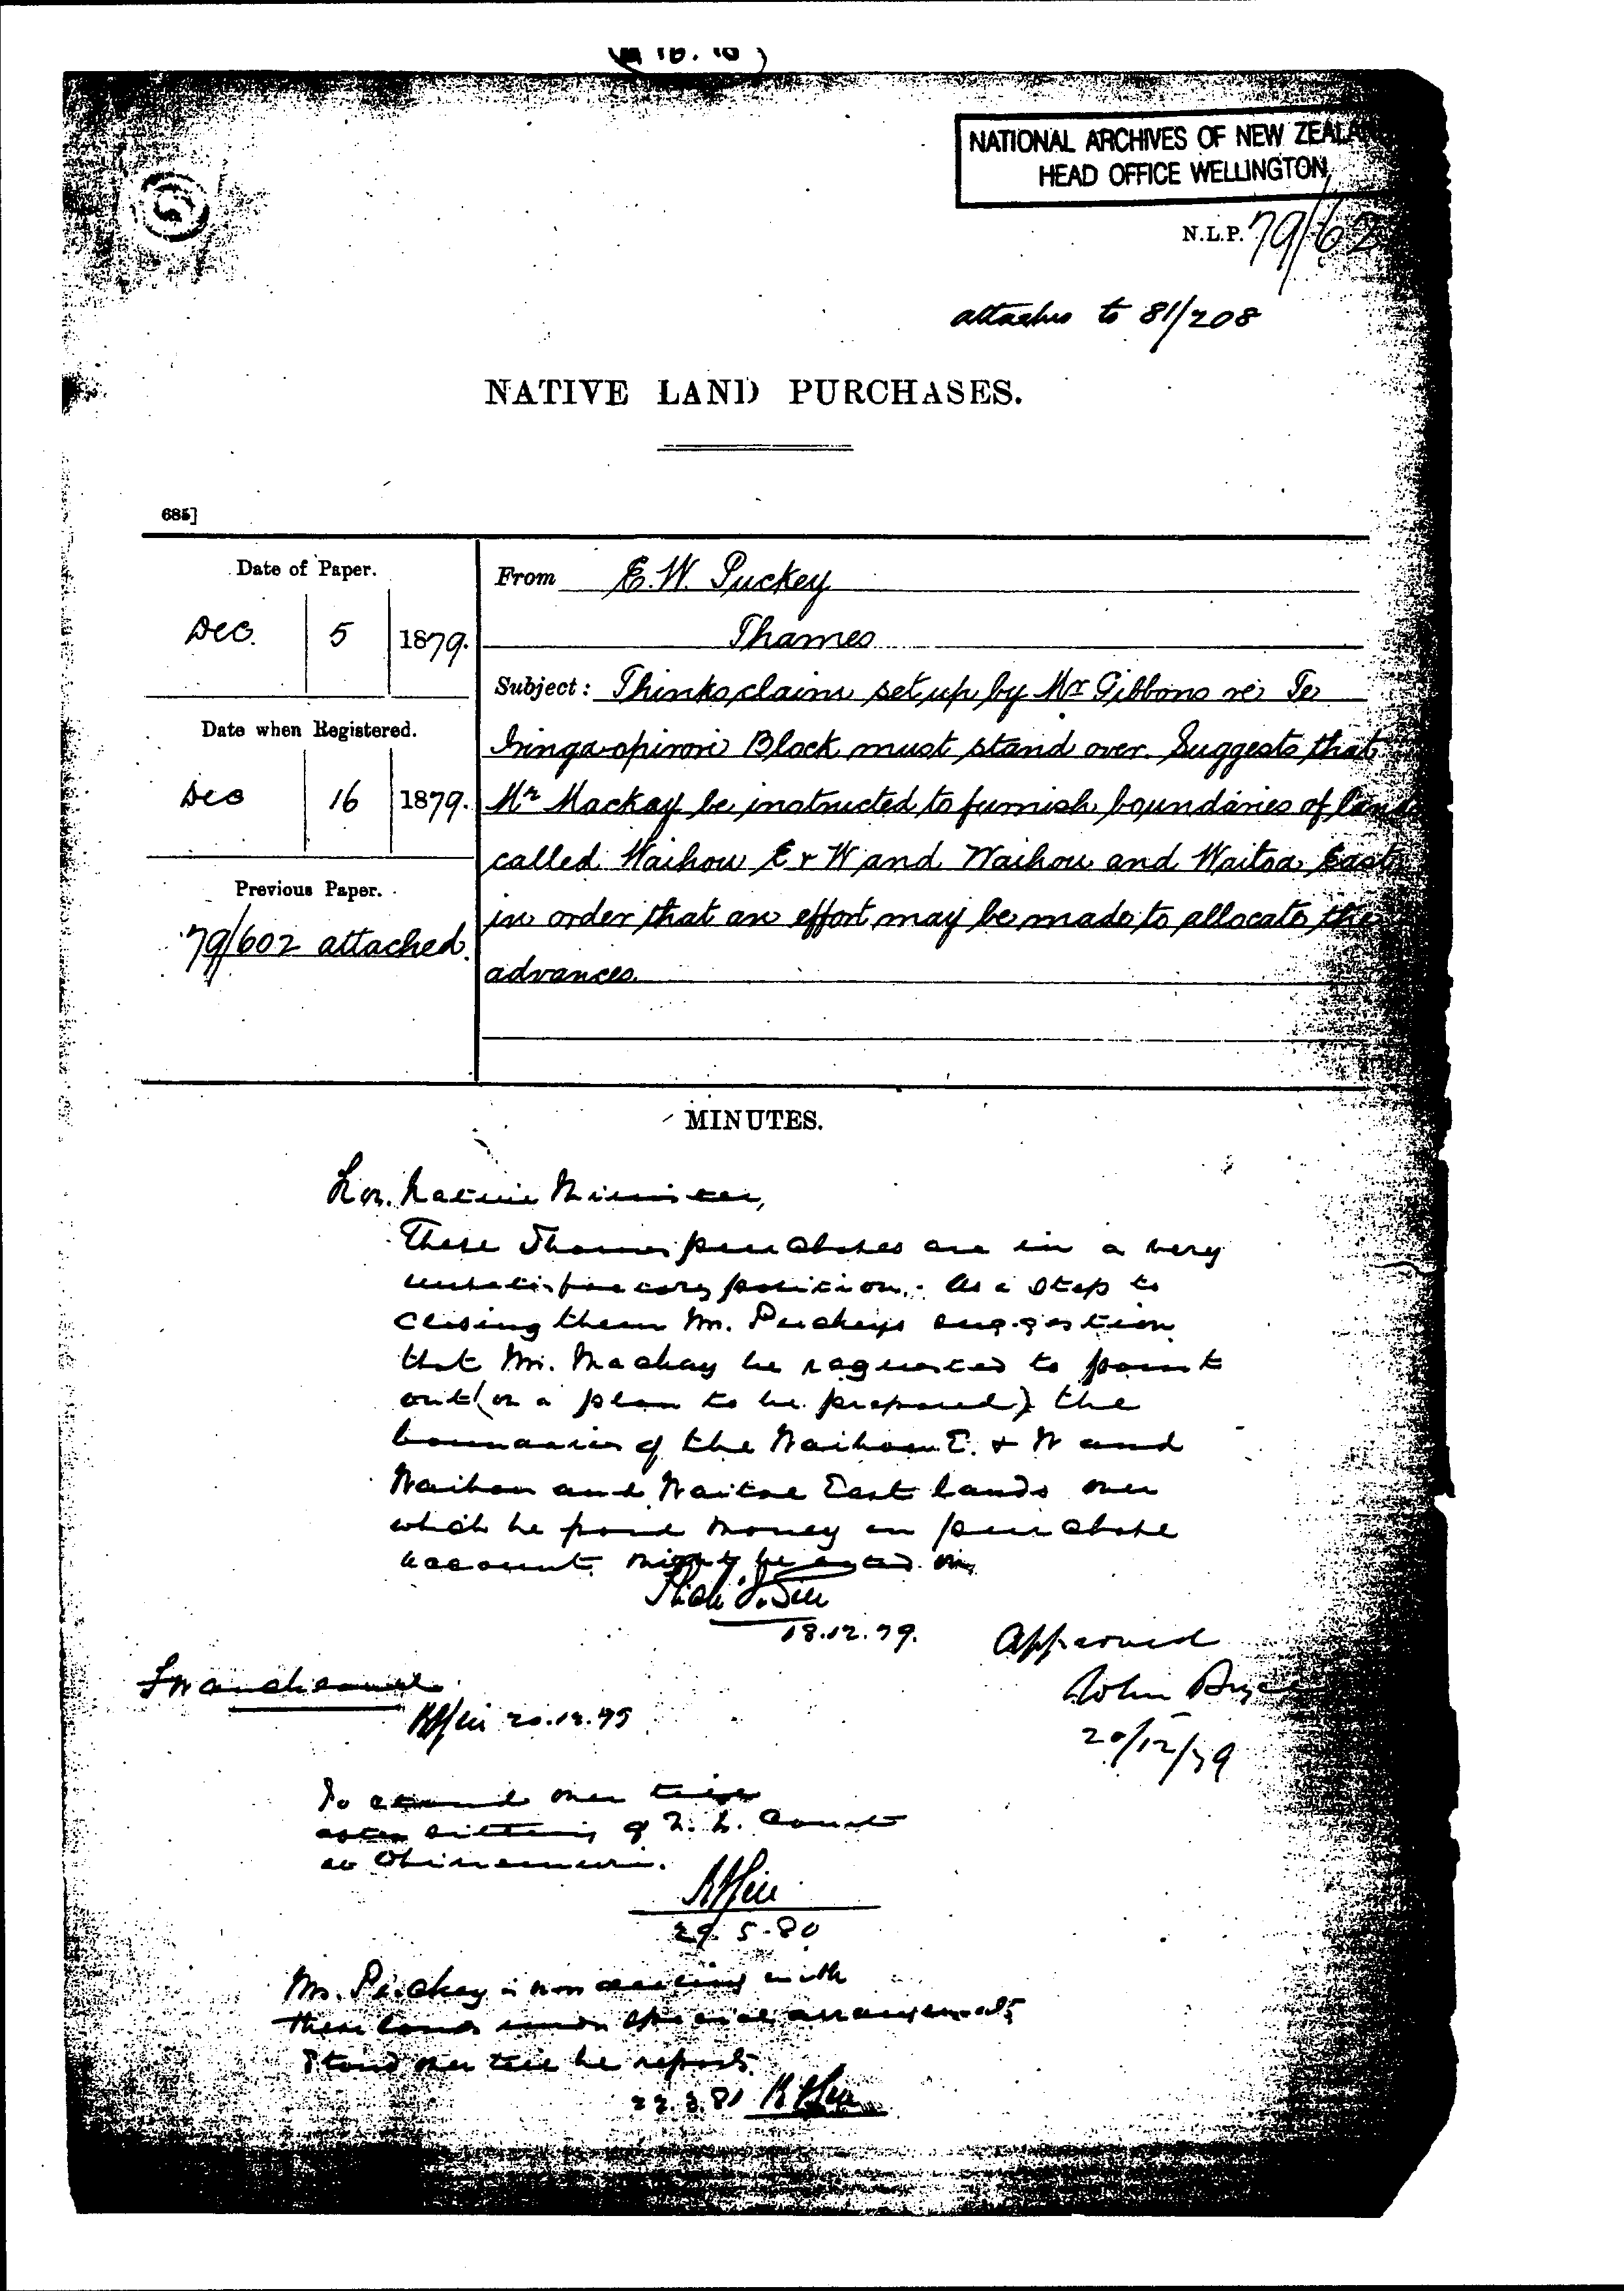 NATIONAL ARCHIVES OF NEW ZEALA
HEAD OFFICE WELLINGTON
N.L.P. 79/62
attaches to 81/208
NATIVE LAND PURCHASES.
685]
Date of Paper.
Dec. 5 1879.
Date when Registered.
Dec 16 1879.
Previous Paper.
79/602 attached.
From E. W. Puckey
Thames
Subject: Thinks claims set up by Mr Gibbons re Te
Iringa-o-pirori Block must stand over. Suggests that
Mr Mackay be instructed to furnish boundaries of land
called Waihou E & W and Waihou and Waitoa East
in order that an effort may be made to allocate the
advances.
MINUTES.
Hon. Native Minister,
These Thames purchases are in a very
unsatisfactory position. As a step to
closing them Mr. Puckey's suggestion
that Mr. Mackay be requested to point
out (on a plan to be prepared) the
boundaries of the Waihou E. & W and
Waihou and Waitoa East lands over
which he paid money on purchase
account might be acted on
18.12.79.
Approved
John Bryce
20/12/79
20.12.79
To stand over till
after sitting of N. L. Court
at Ohinemuri.
29.5.80
Mr. Puckey is now dealing with
these lands under special arrangements
Stand over till he reports.
22.3.81